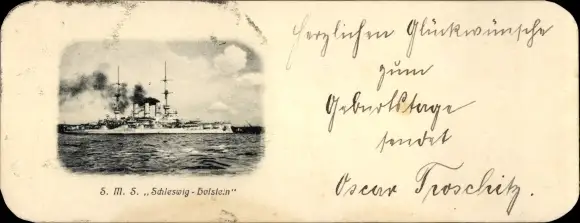 S. M. S. „Schleswig-Holstein"
Herzlichen Glückwünsche
zum
Geburtstage
sendet
Oscar Troschitz.